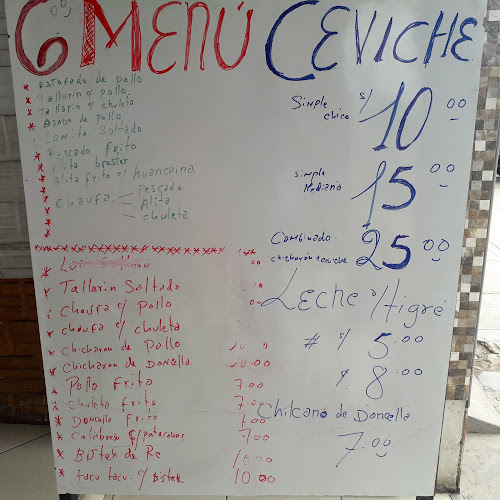 6.00 MENÚ
* ESTOFADO de pollo
* Tallarin c/ pollo
* Tallarin c/ chuleta
* ASADO de pollo
Lomito Saltado
* Pescado frito
* Alita broaster
* Alita frito c/ huancaina
CHAUFA. Pescado
Alita
chuleta
* Tallarin Saltado
* Chaufa c/ Pollo
* chaufa c/ chuleta
* Chicharon de Pollo
* Chicharon de Doncella 10.00
* Pollo Frito 7.00
* Chuleta frito 7.00
* Doncella frito 7.00
* c/patacones 7.00
* Bistek de Re 10.00
* tacu tacu c/ Bistek 10.00
CEVICHE
Simple chico S/ 10.00
simple Mediano 15.00
Combinado chicharón + ceviche 25.00
Leche d/ tigre
# S/ 5.00
S/. 8.00
Chilcano de Doncella
7.00